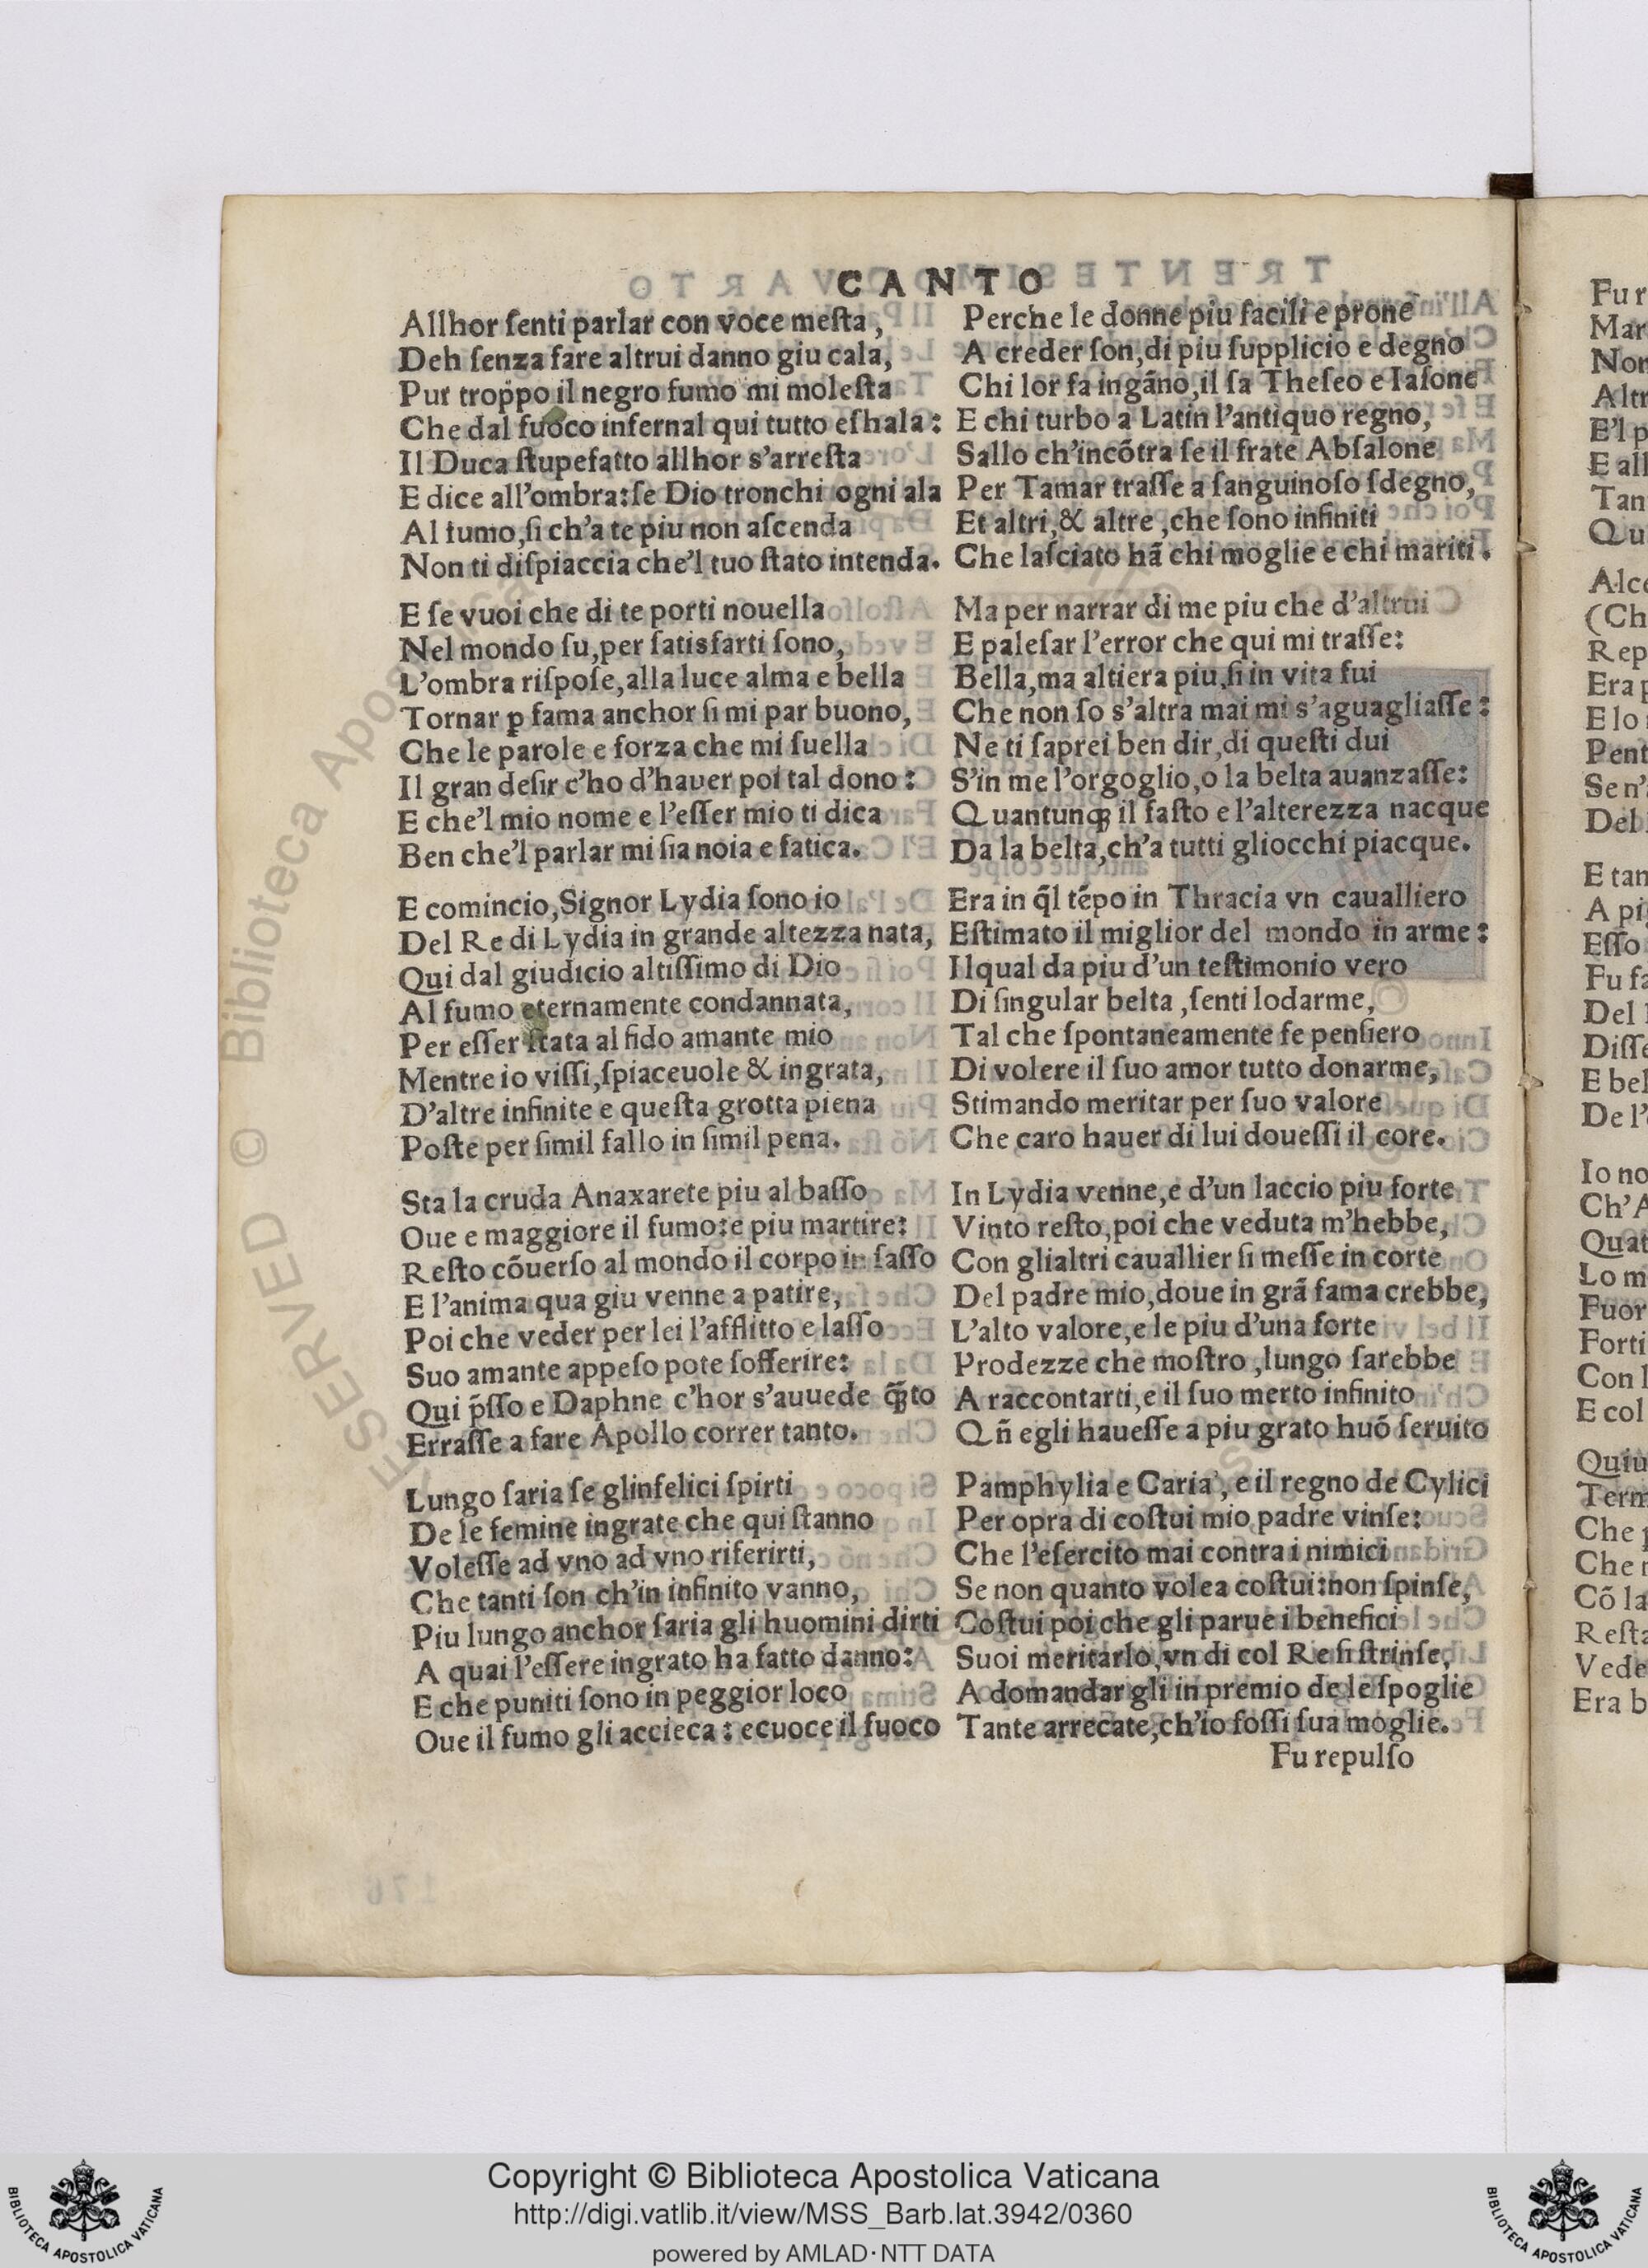 CANTO
Allhor ſenti parlar con voce meſta,
Deh ſenza fare altrui danno giu cala,
Pur troppo il negro fumo mi moleſta
Che dal fuoco infernal qui tutto eſhala:
Il Duca ſtupefatto allhor s'arreſta
E dice all'ombra: ſe Dio tronchi ogni ala
Al fumo, ſi ch'a te piu non aſcenda
Non ti diſpiaccia che'l tuo ſtato intenda.
E ſe vuoi che di te porti nouella
Nel mondo ſu, per ſatisfarti ſono,
L'ombra riſpoſe, alla luce alma e bella
Tornar ꝑ fama anchor ſi mi par buono,
Che le parole e forza che mi ſuella
Il gran deſir c'ho d'hauer poi tal dono:
E che'l mio nome e l'eſſer mio ti dica
Ben che'l parlar mi ſia noia e fatica.
E comincio, Signor Lydia ſono io
Del Re di Lydia in grande altezza nata,
Qui dal giudicio altiſſimo di Dio
Al fumo eternamente condannata,
Per eſſer ſtata al fido amante mio
Mentre io viſſi, ſpiaceuole & ingrata,
D'altre infinite e queſta grotta piena
Poſte per ſimil fallo in ſimil pena.
Sta la cruda Anaxarete piu al baſſo
Oue e maggiore il fumo: e piu martire:
Reſto cōuerſo al mondo il corpo in ſaſſo
E l'anima qua giu venne a patire,
Poi che veder per lei l'afflitto e laſſo
Suo amante appeſo pote ſofferire:
Qui p̄ſſo e Daphne c'hor s'auuede q̄to
Erraſſe a fare Apollo correr tanto.
Lungo ſaria ſe glinfelici ſpirti
De le femine ingrate che qui ſtanno
Voleſſe ad vno ad vno riferirti,
Che tanti ſon ch'in infinito vanno,
Piu lungo anchor ſaria gli huomini dirti
A quai l'eſſere ingrato ha fatto danno:
E che puniti ſono in peggior loco
Oue il fumo gli accieca: ecuoce il fuoco
Perche le donne piu facili e prone
A creder ſon, di piu ſupplicio e degno
Chi lor fa ingāno, il ſa Theſeo e Iaſone
E chi turbo a Latin l'antiquo regno,
Sallo ch'incōtra ſe il frate Abſalone
Per Tamar traſſe a ſanguinoſo ſdegno,
Et altri, & altre, che ſono infiniti
Che laſciato hā chi moglie e chi mariti.
Ma per narrar di me piu che d'altrui
E paleſar l'error che qui mi traſſe:
Bella, ma altiera piu, ſi in vita fui
Che non ſo s'altra mai mi s'aguagliaſſe:
Ne ti ſaprei ben dir, di queſti dui
S'in me l'orgoglio, o la belta auanzaſſe:
Quantunqꝫ il faſto e l'alterezza nacque
Da la belta, ch'a tutti gliocchi piacque.
Era in q̄l tēpo in Thracia vn caualliero
Eſtimato il miglior del mondo in arme:
Ilqual da piu d'un teſtimonio vero
Di ſingular belta, ſenti lodarme,
Tal che ſpontaneamente fe penſiero
Di volere il ſuo amor tutto donarme,
Stimando meritar per ſuo valore
Che caro hauer di lui doueſſi il core.
In Lydia venne, e d'un laccio piu forte
Vinto reſto, poi che veduta m'hebbe,
Con glialtri cauallier ſi meſſe in corte
Del padre mio, doue in grā fama crebbe,
L'alto valore, e le piu d'una ſorte
Prodezze che moſtro, lungo ſarebbe
A raccontarti, e il ſuo merto infinito
Qn̄ egli haueſſe a piu grato huō ſeruito
Pamphylia e Caria, e il regno de Cylici
Per opra di coſtui mio padre vinſe:
Che l'eſercito mai contra i nimici
Se non quanto volea coſtui: non ſpinſe,
Coſtui poi che gli parue i benefici
Suoi meritarlo, vn di col Re ſi ſtrinſe,
A domandar gli in premio de le ſpoglie
Tante arrecate, ch'io foſſi ſua moglie.
Fu repulſo
Copyright © Biblioteca Apostolica Vaticana
http://digi.vatlib.it/view/MSS_Barb.lat.3942/0360
powered by AMLAD·NTT DATA
BIBLIOTECA APOSTOLICA VATICANA
BIBLIOTECA APOSTOLICA VATICANA